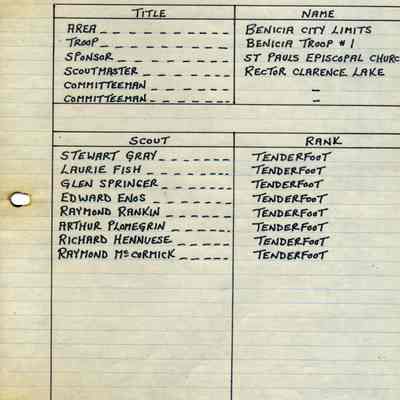 TITLE NAME
AREA BENICIA CITY LIMITS
TROOP BENICIA TROOP #1
SPONSOR ST PAULS EPISCOPAL CHURC
SCOUTMASTER RECTOR CLARENCE LAKE
COMMITTEEMAN –
COMMITTEEMAN –
SCOUT RANK
STEWART GRAY TENDERFOOT
LAURIE FISH TENDERFOOT
GLEN SPRINGER TENDERFOOT
EDWARD ENOS TENDERFOOT
RAYMOND RANKIN TENDERFOOT
ARTHUR PLOMEGRIN TENDERFOOT
RICHARD HENNUESE TENDERFOOT
RAYMOND McCORMICK TENDERFOOT